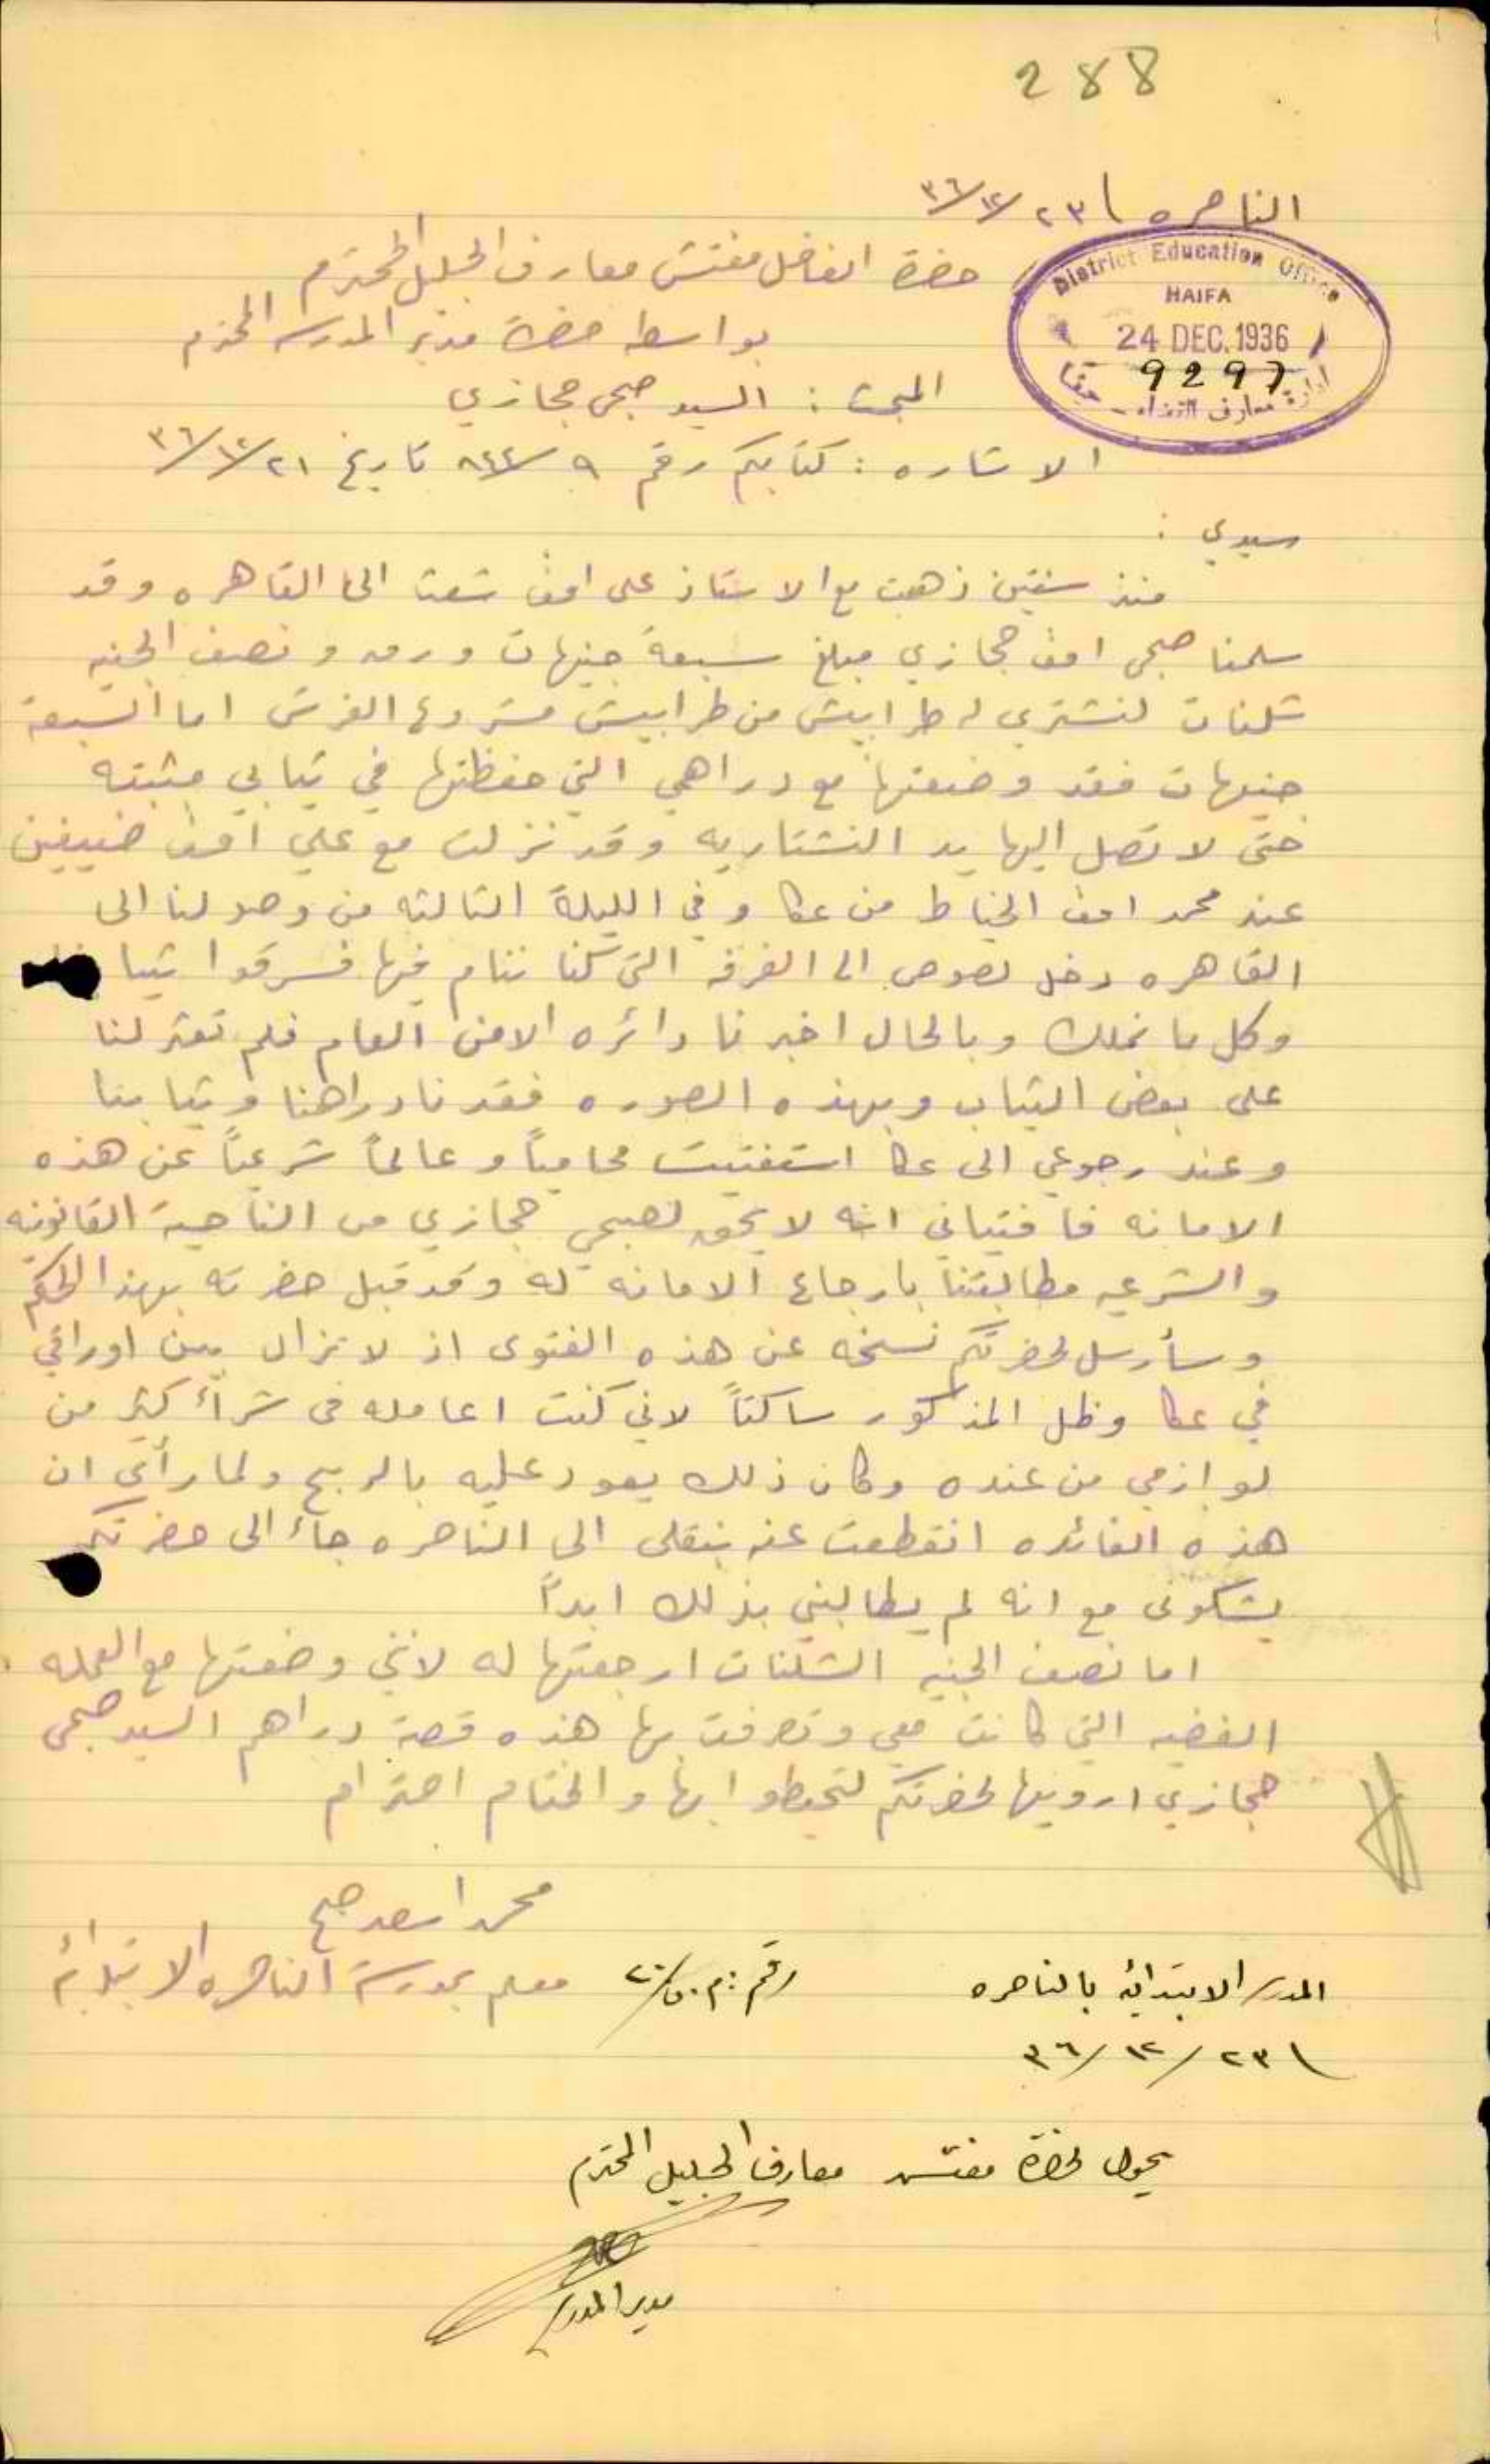 288
الناصره ٢٣/١٢/٣٦
District Education Office
HAIFA
24 DEC. 1936
9297
ادارة معارف القضاء - حيفا
حضرة الفاضل مفتش معارف الجليل المحترم
بواسطة حضرة مدير المدرسه المحترم
المبحث : السيد صبحي حجازي
الاشاره : كتابكم رقم ٩/٨٤٤ تاريخ ٢١/١٢/٣٦
سيدي :
منذ سنتين ذهبت مع الاستاذ علي افندي شعث الى القاهره وقد
سلمنا صبحي افندي حجازي مبلغ سبعة جنيهات ورق ونصف الجنيه
شلنات لنشتري له طرابيش من طرابيش مشروع القرش اما السبعة
جنيهات فقد وضعتها مع دراهمي التي حفظتها في ثيابي مثبته
حتى لا تصل اليها يد النشتاريه وقد نزلت مع علي افندي ضيفين
عند محمد افندي الخياط من عكا وفي الليلة الثالثه من وصولنا الى
القاهره دخل لصوص الى الغرفه التي كنا ننام فيها فسرقوا ثيابنا
وكل ما نملك وبالحال اخبرنا دائره الامن العام فلم تعثر لنا
على بعض الثياب وبهذه الصوره فقدنا دراهمنا وثيابنا
وعند رجوعي الى عكا استفتيت محامياً وعالماً شرعياً عن هذه
الامانه فافتياني انه لا يحق لصبحي حجازي من الناحية القانونيه
والشرعيه مطالبتنا بارجاع الامانه له وقد قبل حضرته بهذا الحكم
وسأرسل لحضرتكم نسخه عن هذه الفتوى اذ لا تزال بين اوراقي
في عكا وظل المذكور ساكتاً لاني كنت اعامله في شرآء كثير من
لوازمي من عنده وكان ذلك يعود عليه بالربح ولما رأى ان
هذه الفائده انقطعت عنه بنقلي الى الناصره جاء الى حضرتكم
يشكوني مع انه لم يطالبني بذلك ابداً
اما نصف الجنيه الشلنات ارجعتها له لانني وضعتها مع العمله
الفضيه التي كانت معي وتصرفت بها هذه قصة دراهم السيد صبحي
حجازي ارويها لحضرتكم لتحيطوا بها والختام احترام
محمد اسعد صبح
معلم بمدرسة الناصره الابتدائيه
المدرسه الابتدائيه بالناصره
رقم : م.ن/٢٠
٢٣/١٢/٣٦
يحول لحضرة مفتش معارف الجليل المحترم
مدير المدرسه